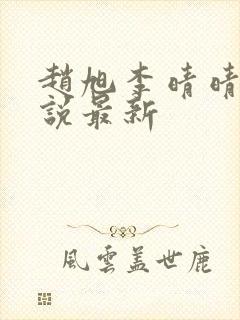 趙旭李晴晴
說最新
風雲蓋世鹿